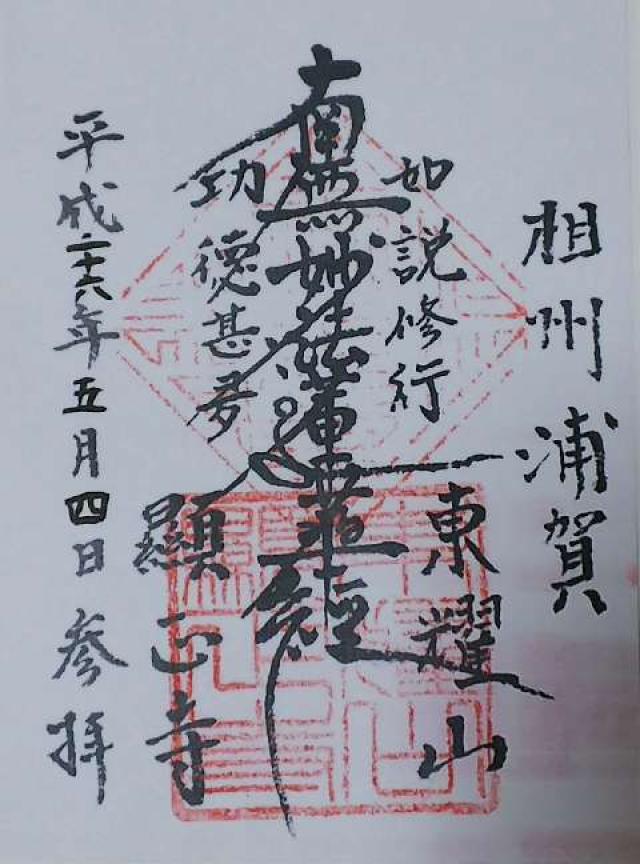 相州浦賀
如説修行
東耀山
南無妙法蓮華経
功徳甚多
顯正寺
平成二十六年五月四日参拝